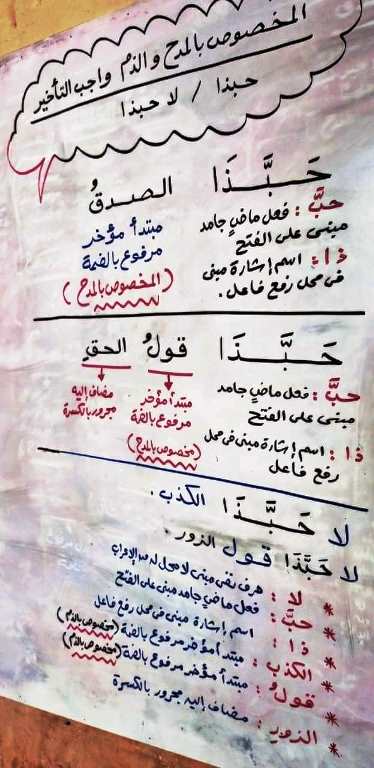 المخصوص بالمدح والذم واجب التأخير
حبذا / لا حبذا
حَبَّذَا الصدقُ
حبَّ : فعل ماضٍ جامد
مبنى على الفتح
ذا : اسم إشارة مبنى
فى محل رفع فاعل .
مبتدأ مؤخر
مرفوع بالضمة
(المخصوص بالمدح)
حَبَّذَا قولُ الحقِ
حبَّ : فعل ماضٍ جامد
مبنى على الفتح
ذا : اسم إشارة مبنى فى محل
رفع فاعل
مبتدأ مؤخر
مرفوع بالضمة
(مخصوص بالمدح)
مضاف إليه
مجرور بالكسرة
لا حَبَّذَا الكذب .
لا حَبَّذَا قول الزور .
* لا : حرف نفى مبنى لا محل له من الإعراب
* حبَّ : فعل ماضٍ جامد مبنى على الفتح
* ذا : اسم إشارة مبنى فى محل رفع فاعل
* الكذب : مبتدأ مؤخر مرفوع بالضمة (مخصوص بالذم)
* قولُ : مبتدأ مؤخر مرفوع بالضمة (مخصوص بالذم)
* الزور : مضاف إليه مجرور بالكسرة